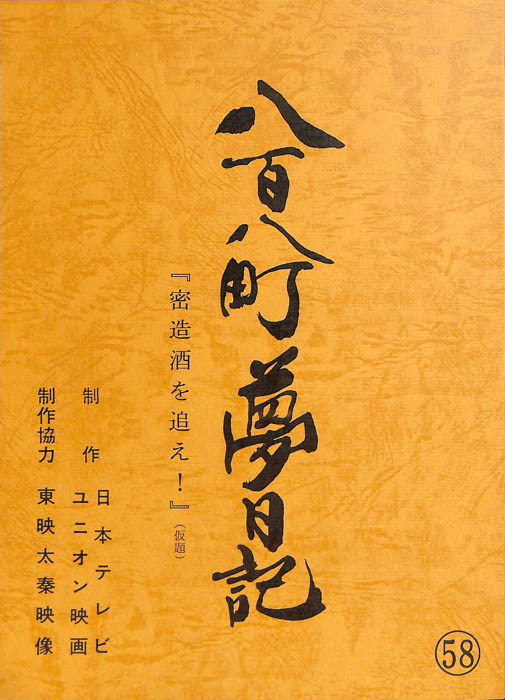 八百八町夢日記
『密造酒を追え！』（仮題）
制作 日本テレビ
ユニオン映画
制作協力 東映太秦映像
58